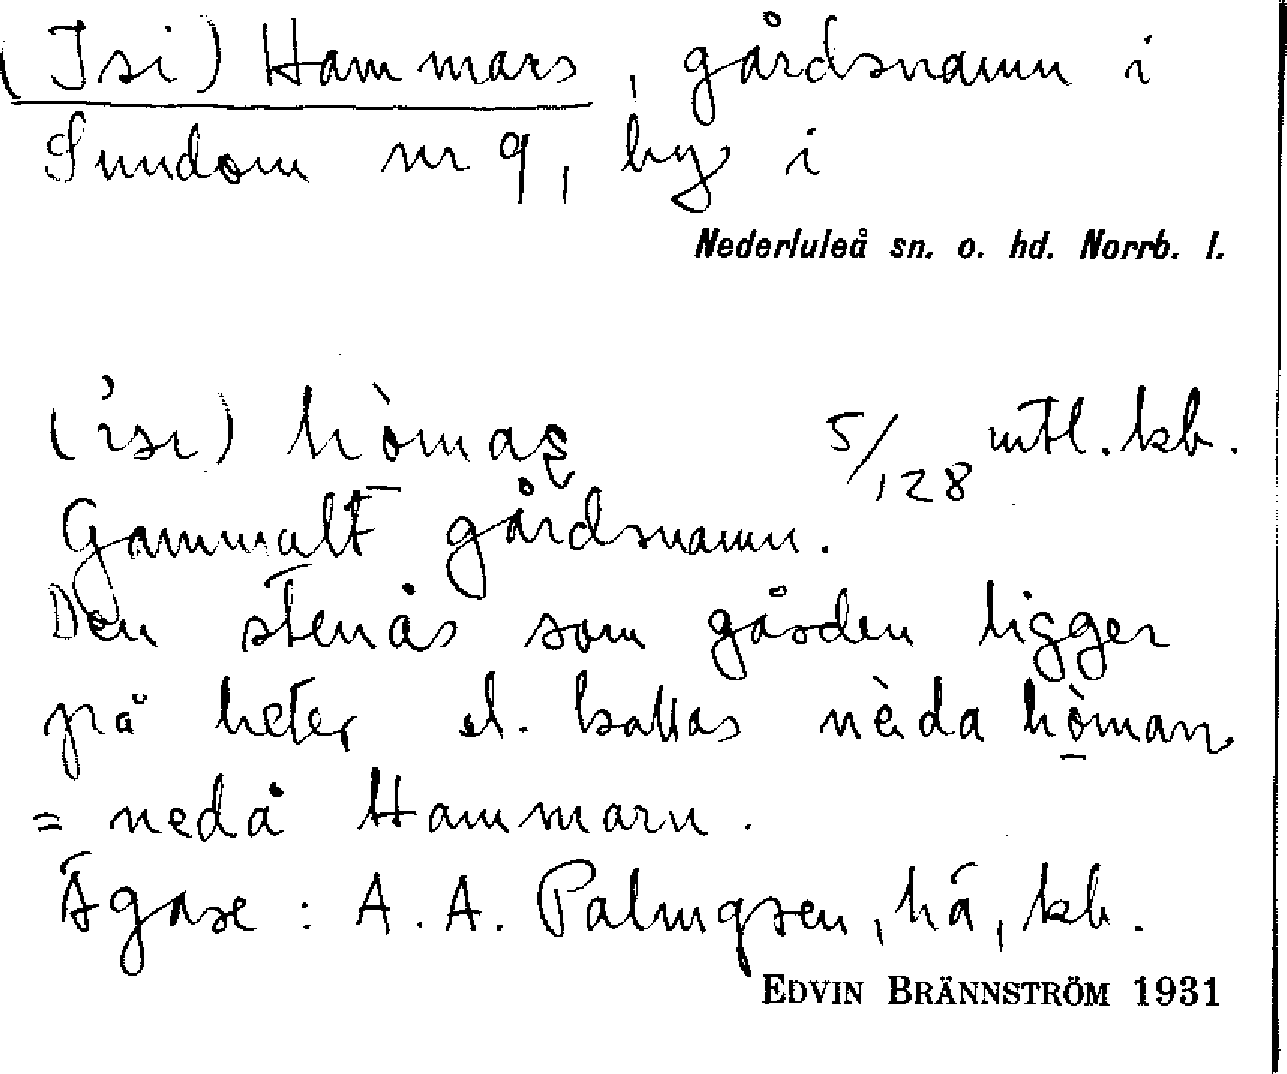 (Isi) Hammars, gårdsnamn i
Sundom nr 9, by i
Nederluleå sn. o. hd. Norrb. l.
(ísı) hòmaş 5/128 mtl. kb.
Gammalt gårdsnamn.
Den stenås som gården ligger
på heter el. kallas nèda hòman.
= nedå Hammarn.
Ägare: A. A. Palmgren, hä, kb.
EDVIN BRÄNNSTRÖM 1931